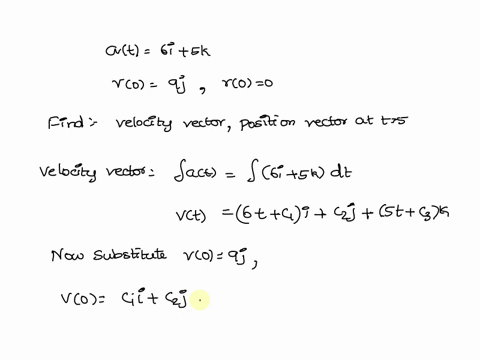 a(t) = 6i + 5k
v(0) = 9j , r(0) = 0
Find :- velocity vector, position vector at t=5
Velocity vector: ∫a(t) = ∫(6i+5k) dt
v(t) = (6t+C₁)i + C₂j + (5t+C₃)k
Now substitute v(0) = 9j,
v(0) = C₁i + C₂j